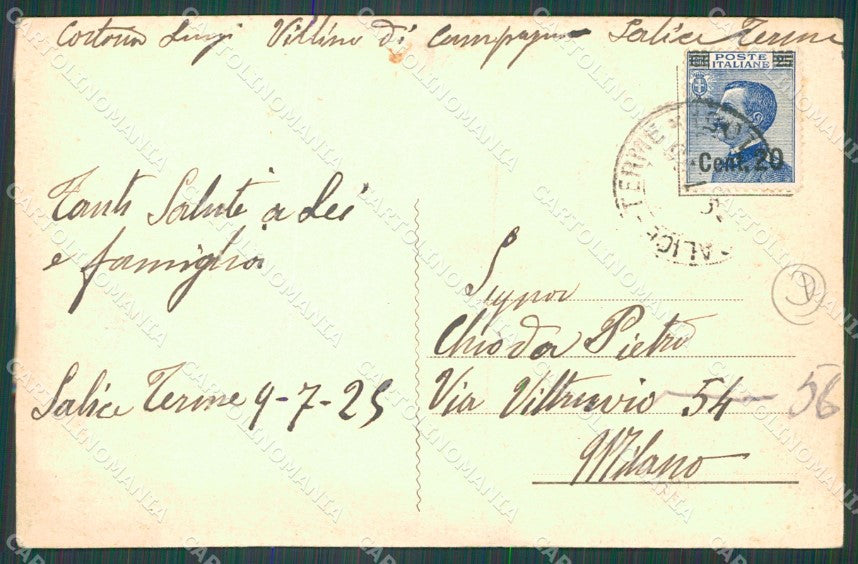 Cortona Luigi Villino di Campagna Salice Terme
POSTE
ITALIANE
25
Cent. 20
SALICE-TERME
Tanti Saluti a Lei
e famiglia
Salice Terme 9-7-25
Signor
Chioda Pietro
Via Vittruvio 54 - 56
Milano
CARTOLINOMANIA